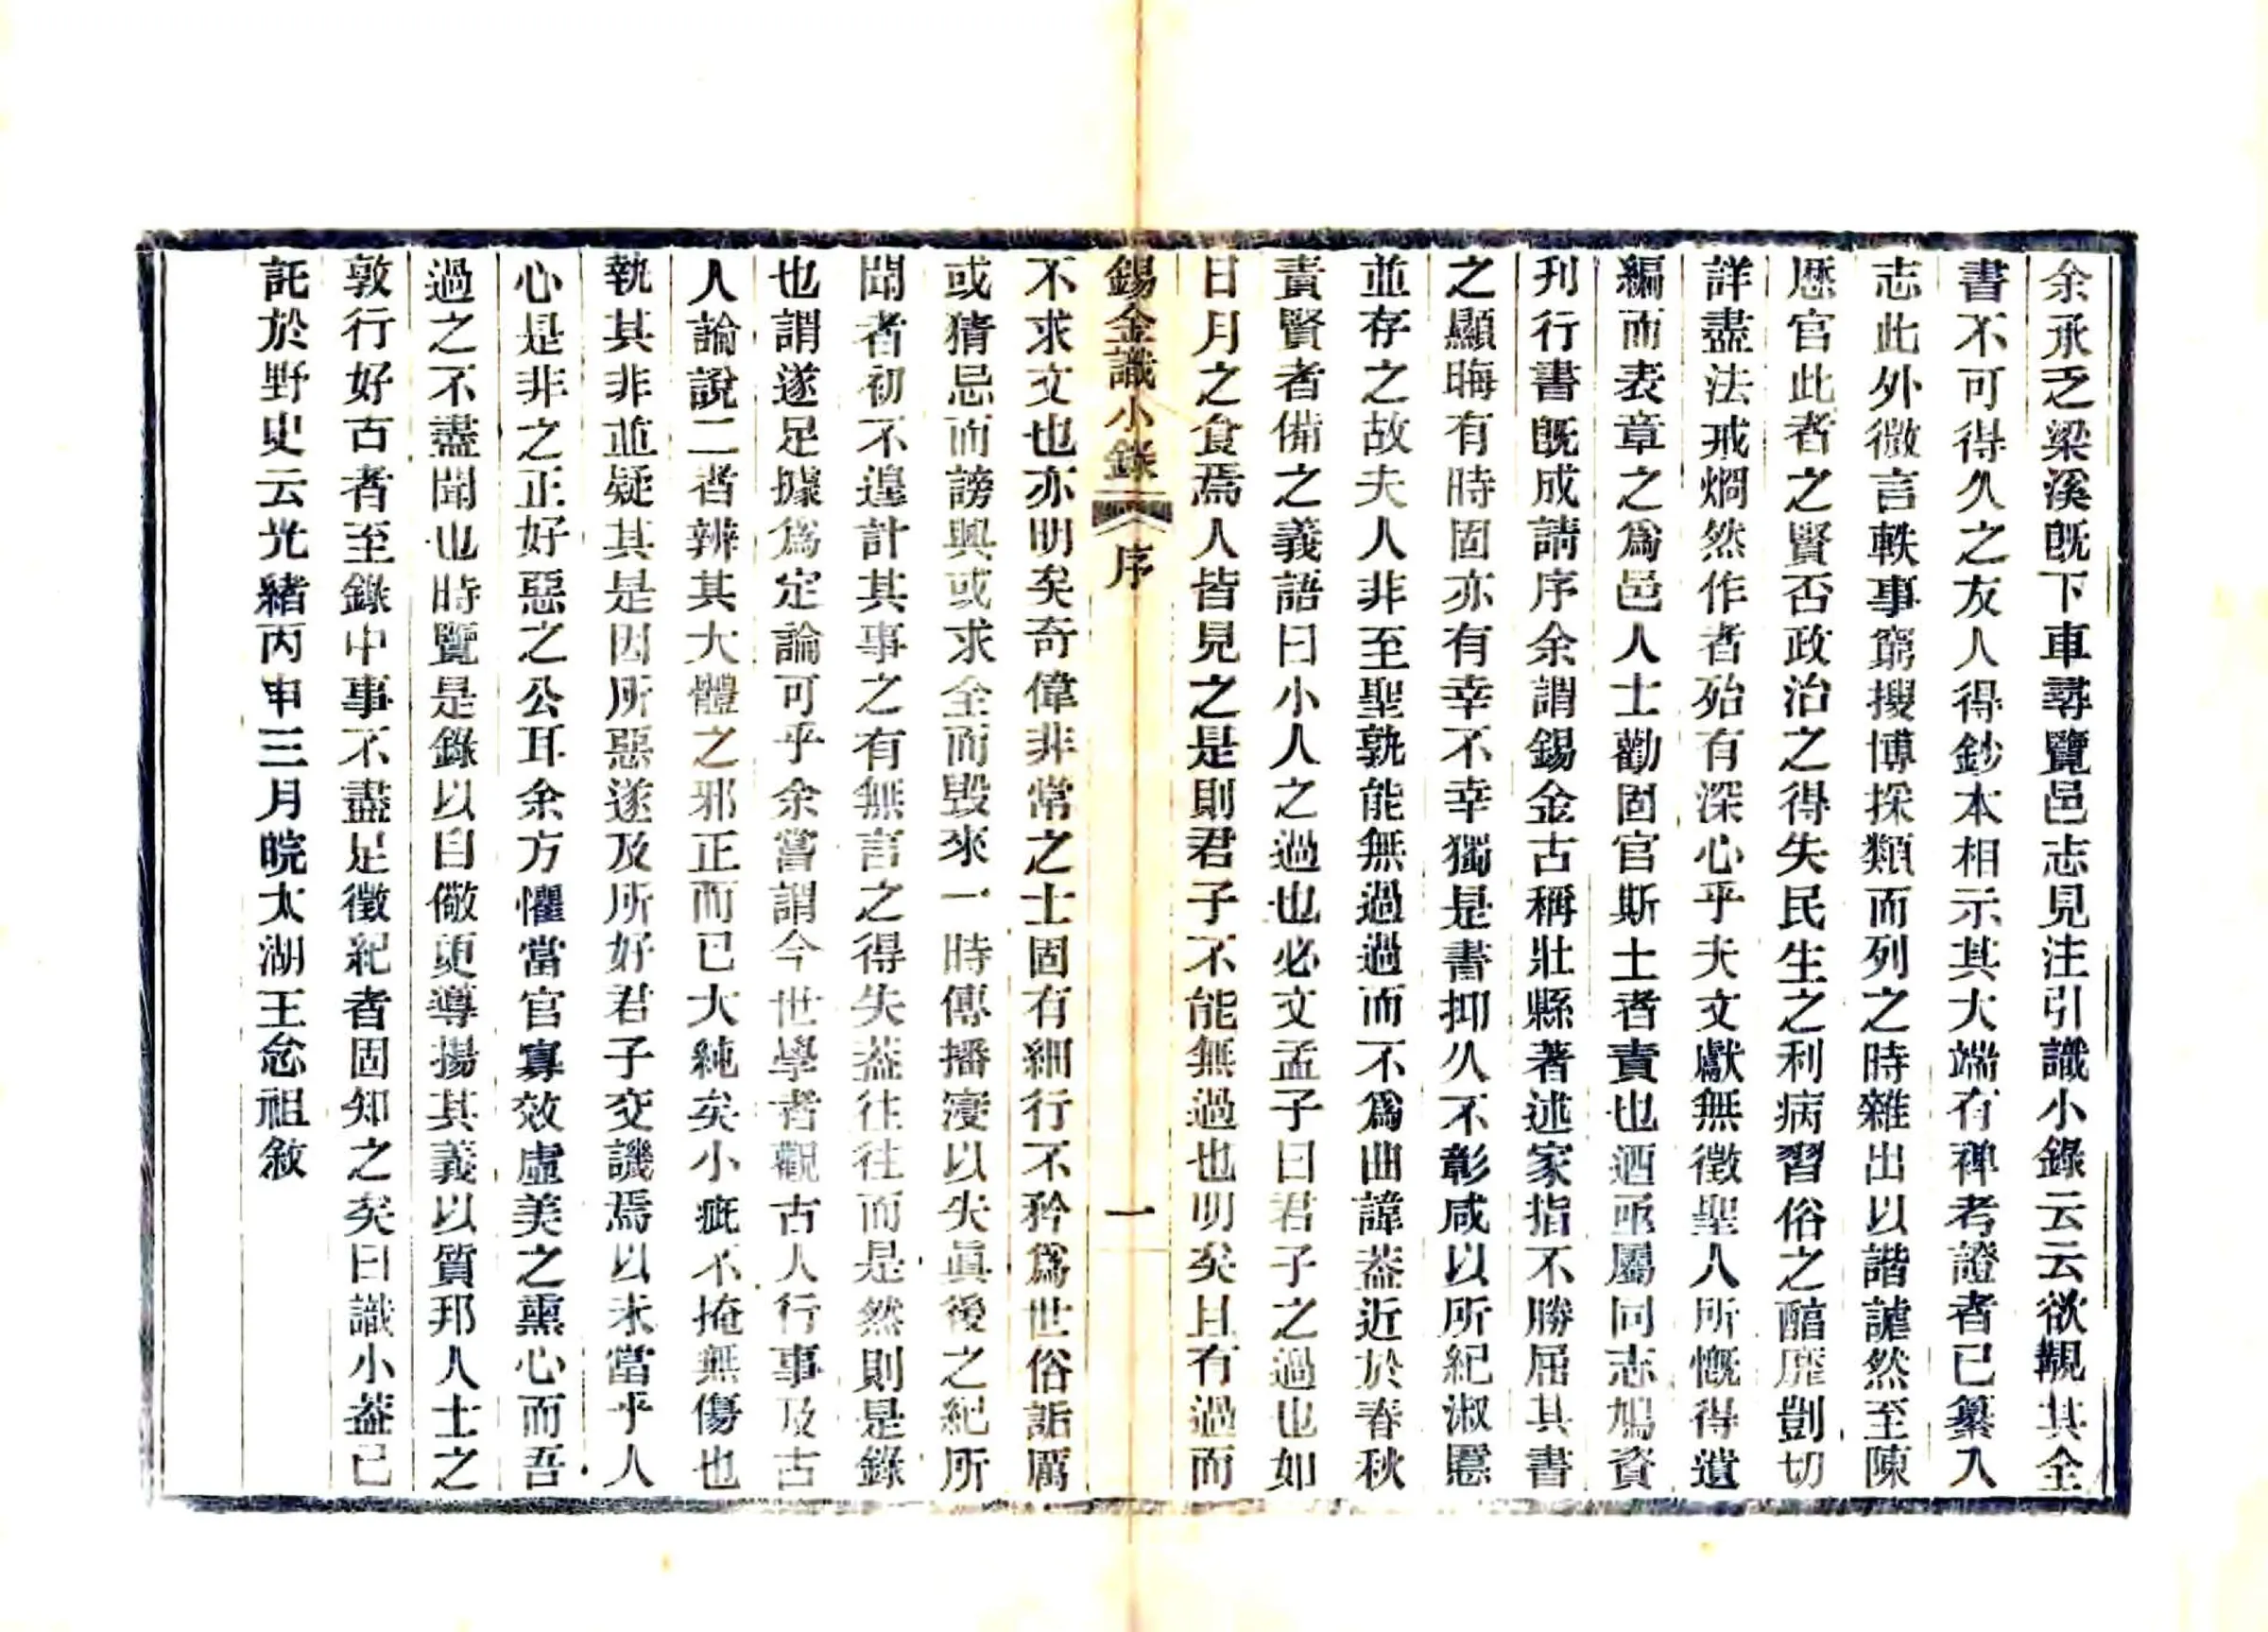 余承乏梁溪旣下車尋覽邑志見注引識小錄云云欲覩其全
書不可得久之友人得鈔本相示其大端有裨考證者已纂入
志此外微言軼事窮搜博採類而列之時雜出以諧謔然至陳
歷官此者之賢否政治之得失民生之利病習俗之醕靡剴切
詳盡法戒烱然作者殆有深心乎夫文獻無徵聖人所慨得遺
編而表章之爲邑人士勸固官斯土者責也迺亟屬同志鳩資
刋行書旣成請序余謂錫金古稱壯縣著述家指不勝屈其書
之顯晦有時固亦有幸不幸獨是書抑久不彰咸以所紀淑慝
並存之故夫人非至聖孰能無過過而不爲曲諱葢近於春秋
責賢者備之義語曰小人之過也必文孟子曰君子之過也如
日月之食焉人皆見之是則君子不能無過也明矣且有過而
錫金識小錄 序 一
不求文也亦明矣奇偉非常之士固有細行不矜爲世俗詬厲
或猜忌而謗興或求全而毀來一時傳播寖以失眞後之紀所
聞者初不遑計其事之有無言之得失葢往往而是然則是錄
也謂遂足據爲定論可乎余嘗謂今世學者觀古人行事及古
人論說二者辨其大體之邪正而已大純矣小疵不掩無傷也
執其非並疑其是因所惡遂及所好君子交譏焉以未當乎人
心是非之正好惡之公耳余方懼當官寡效虛美之熏心而吾
過之不盡聞也時覽是錄以自儆更導揚其義以質邦人士之
敦行好古者至錄中事不盡足徵紀者固知之矣曰識小葢已
託於野史云光緒丙申三月皖太湖王念祖敘